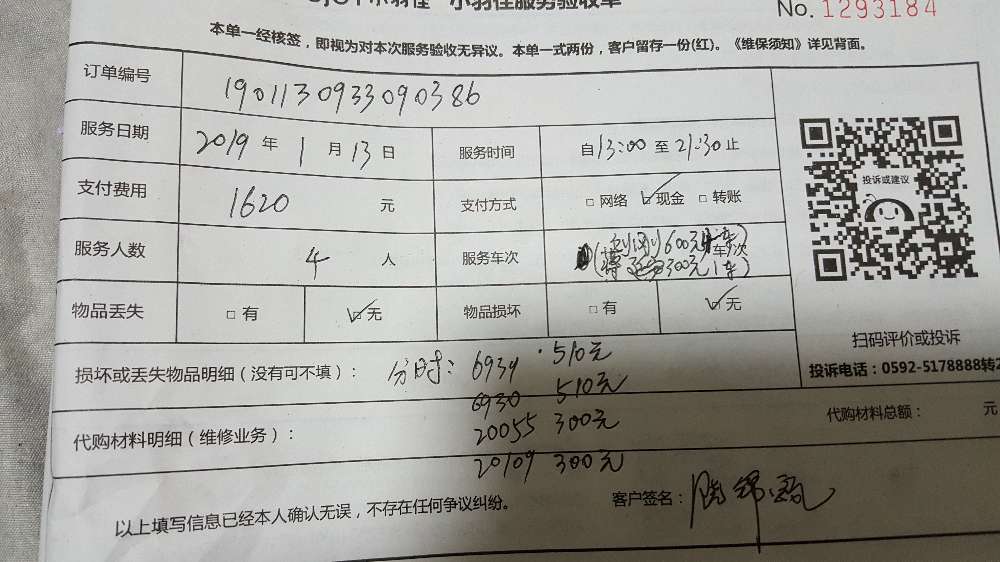 小羽佳服务验收单
No. 1293184
本单一经核签，即视为对本次服务验收无异议。本单一式两份，客户留存一份(红)。《维保须知》详见背面。
订单编号 190113093309 0386
服务日期 2019 年 1 月 13 日 服务时间 自 13:00 至 21:30 止
投诉或建议
支付费用 1620 元 支付方式 □ 网络 ☑ 现金 □ 转账
服务人数 4 人 服务车次 600元 车/次
300元 1车
物品丢失 □ 有 ☑ 无 物品损坏 □ 有 ☑ 无
扫码评价或投诉
投诉电话：0592-5178888转2
损坏或丢失物品明细（没有可不填）： 分时： 6934 510元
6930 510元
代购材料明细（维修业务）： 20055 300元 代购材料总额： 元
20109 300元
以上填写信息已经本人确认无误，不存在任何争议纠纷。 客户签名：